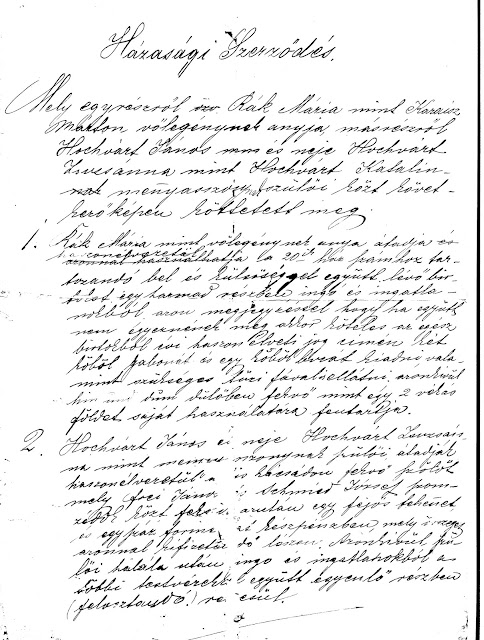 Házasági Szerződés.
Mely egyrészről özv. Rák Mária mint Karaisz
Márton vőlegénynek anyja, másrészről
Hochvárt János mm és neje Hochvart
Zsuzsanna mint Hochvárt Katalin-
nak menyasszony szülői közt követ-
kezőképen köttetett meg
1. Rák Mária mint vőlegénynek anya átadja és
a 20 ik ház számhoz tar-
tozandó bel és külsőséggel együtt lévő bir-
tokát egy harmad részben ingó és ingatla-
nokból, azon megjegyzéssel hogy ha együtt
nem egyeznének meg akkor köteles az egész
birtokból évi haszon élveti jog címén két
köböl gabonát és egy köböl kiadni vala-
mint szükséges tűzi fával ellátni, azonkívül
dűlőben fekvő mint egy 2 vékás
földet saját használatára fentartja.
2 Hochvárt János és neje Hochvart Zsuzsán-
na mint szülői átadják
is fekvő szőlőt
mely János is Schmied József szom-
zédok közt fekszi, azután egy fejős tehenet
és egy pár készpénzben, mely össze
azonnal kifizeten dő lészen. Azonkívül szü-
lői halála után ingó és ingatlanokból a
többi testvérekkel együtt egyenlő részben
(felosztandó) részesül.